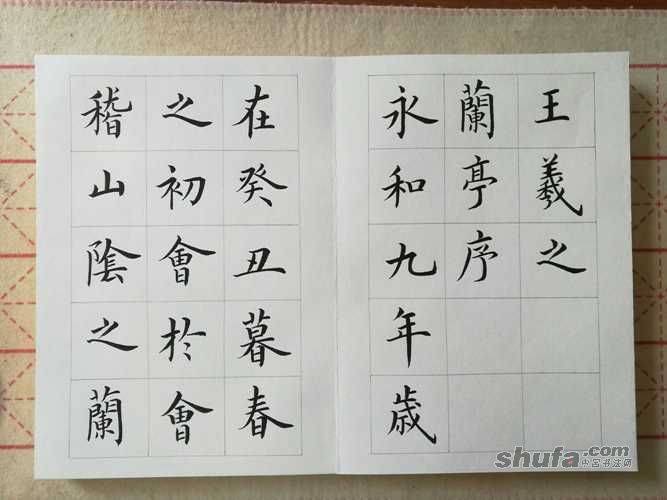 王羲之
蘭亭序
永和九年歲
在癸丑暮春
之初會於會
稽山陰之蘭
shufa.com
中国书法网